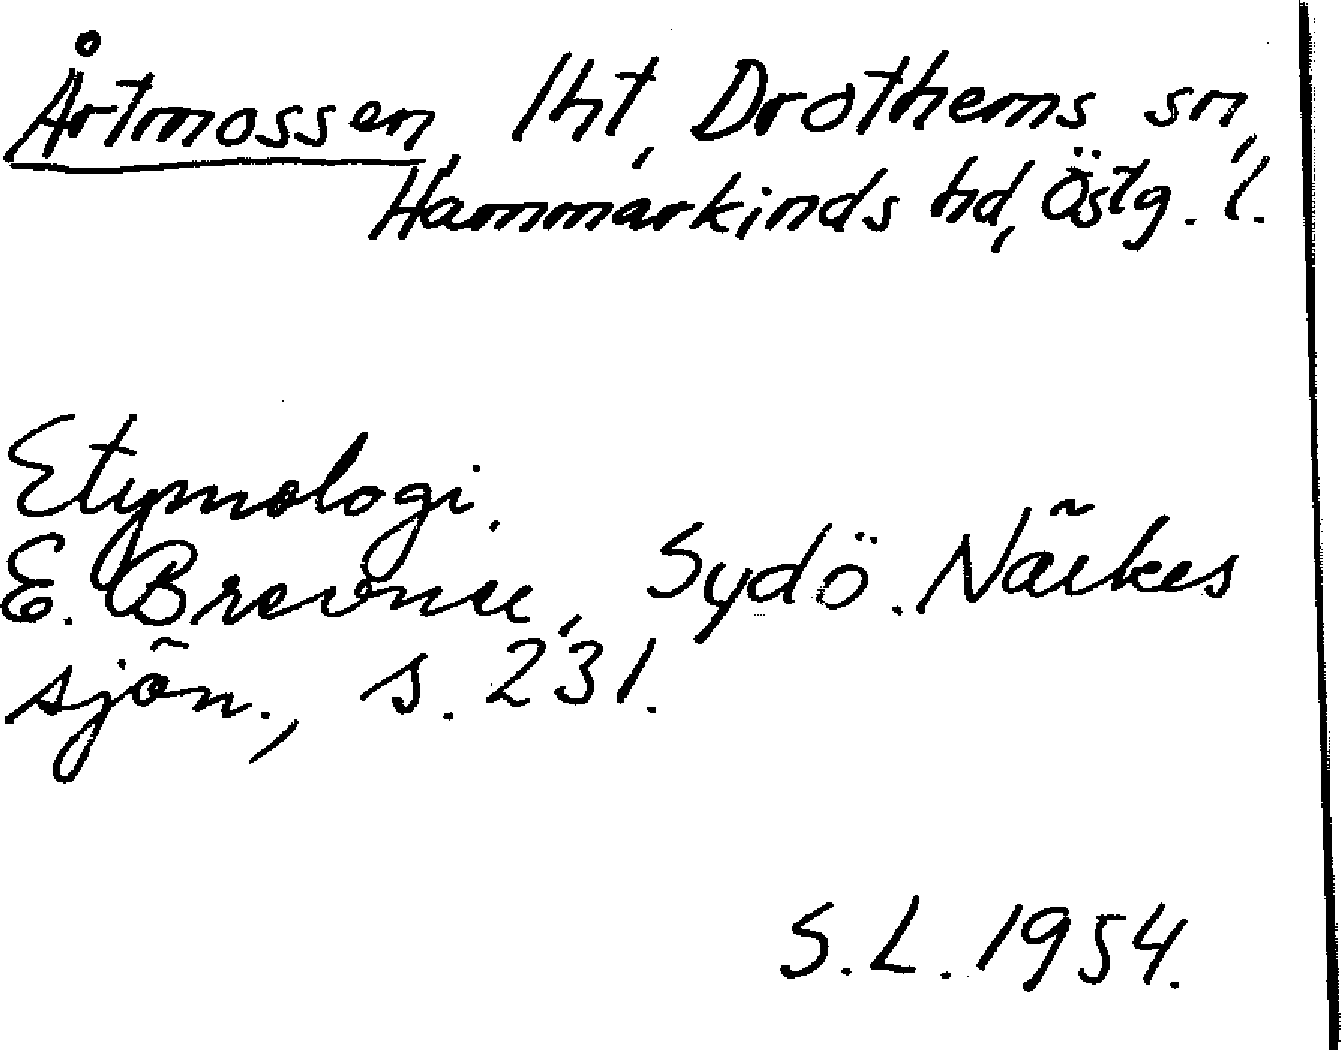 Årtmossen, lht, Drothems sn,
Hammarkinds hd, Östg. l.
Etymologi.
E. Brevner, Sydö. Närkes
sjön., s. 231.
S.L. 1954.